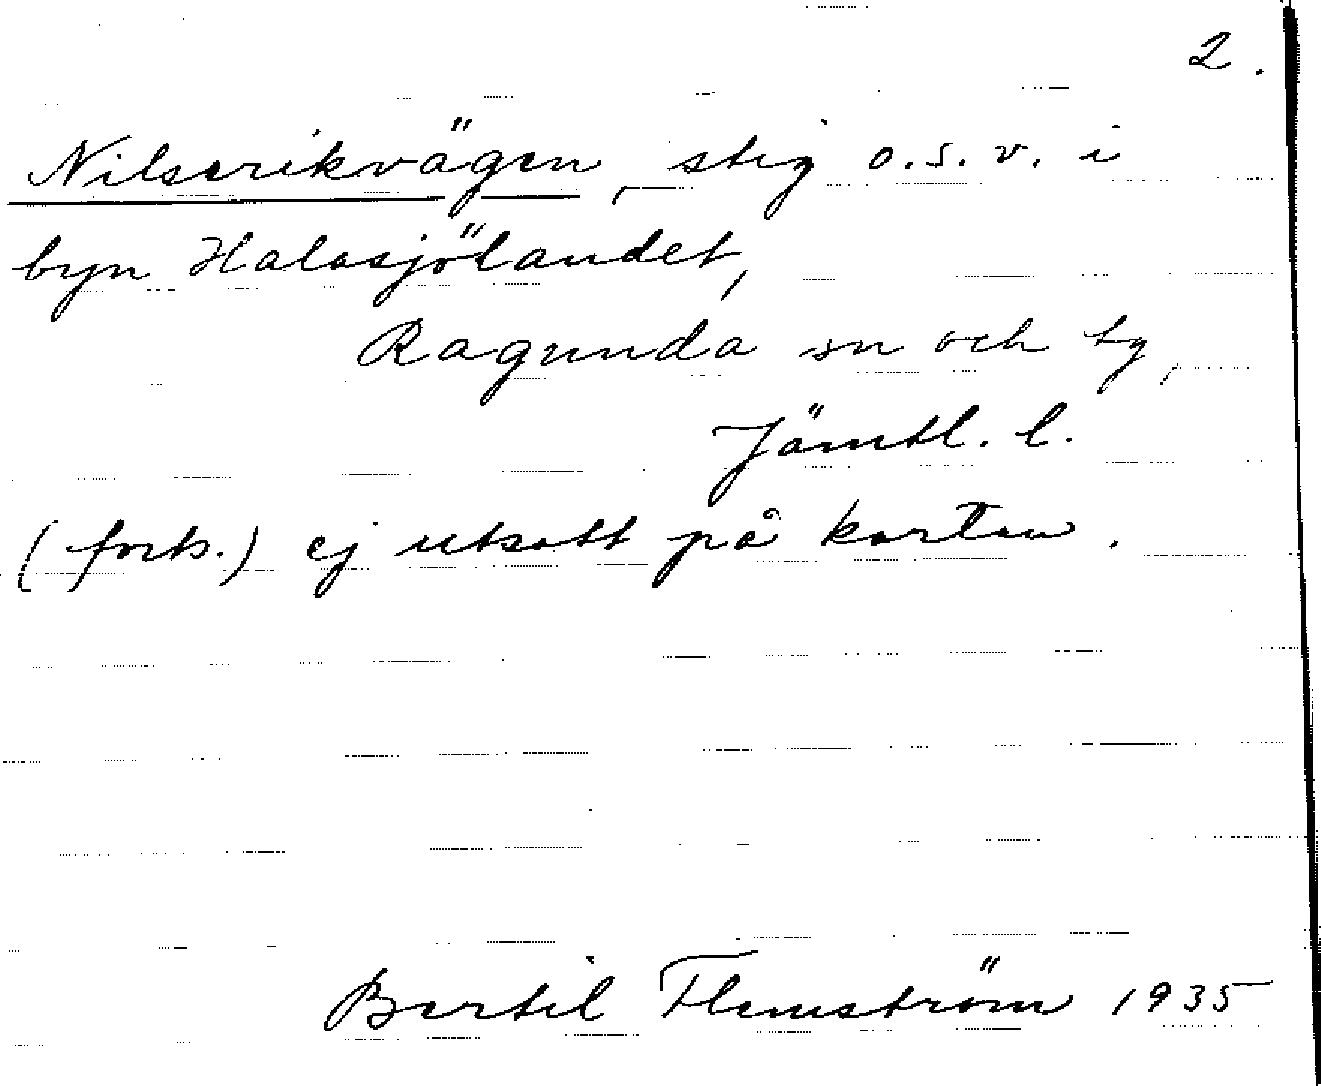 2.
Nilserikvägen, stig o.s.v. i
byn Halasjölandet,
Ragunda sn och tg,
Jämtl. l.
(forts.) ej utsatt på kartan.
Bertil Flemström 1935